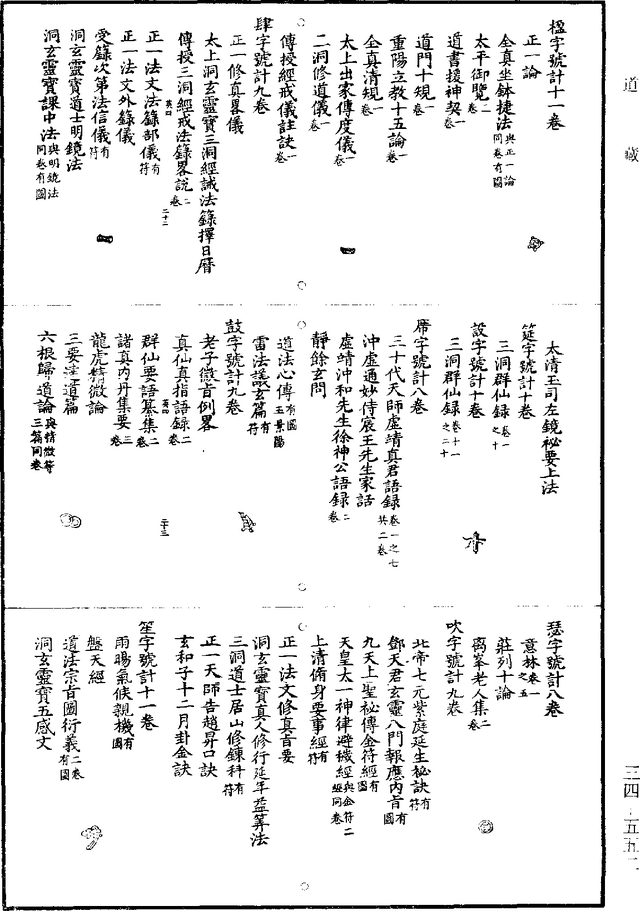 道藏
楹字號計十一卷
正一論
全真坐鉢捷法與正一論同卷有圖
太平御覽卷二
道書援神契卷一
道門十規卷一
重陽立教十五論卷一
全真清規卷一
太上出家傳度儀卷一
二洞修道儀卷一
傳授經戒儀註訣卷一
肆字號計九卷
正一修真畧儀
太上洞玄靈寶三洞經誡法籙擇日曆
傳授三洞經戒法籙畧說卷二
二十二
正一法文法籙部儀有符
正一法文外籙儀
受籙次第法信儀有符
洞玄靈寶道士明鏡法
洞玄靈寶課中法與明鏡法同卷有圖
太清玉司左鏡祕要上法
筵字號計十卷
三洞群仙錄卷一之十
設字號計十卷
三洞群仙錄卷十一之二十
席字號計八卷
三十代天師虛靖真君語錄卷一之七共二卷
沖虛通妙侍宸王先生家話
虛靖沖和先生徐神公語錄卷二
靜餘玄問
道法心傳有圖王景陽
雷法議玄篇有符
鼓字號計九卷
老子微旨例畧
真仙真指語錄卷二
群仙要語纂集卷二
二十三
諸真內丹集要卷三
龍虎精微論
三要達道篇
六根歸道論與精微等三篇同卷
瑟字號計八卷
意林卷一之五
莊列十論
离峯老人集卷二
吹字號計九卷
北帝七元紫庭延生祕訣有符
鄧天君玄靈八門報應內旨有圖
九天上聖祕傳金符經有圖
天皇太一神律避穢經與金符二經同卷
上清脩身要事經有符
正一法文修真旨要
洞玄靈寶真人修行延年益筭法
三洞道士居山修鍊科有符
正一天師告趙昇口訣
玄和子十二月卦金訣
笙字號計十一卷
雨暘氣候親機有圖
盤天經
道法宗旨圖衍義二卷有圖
洞玄靈寶五感文
三四—五五二